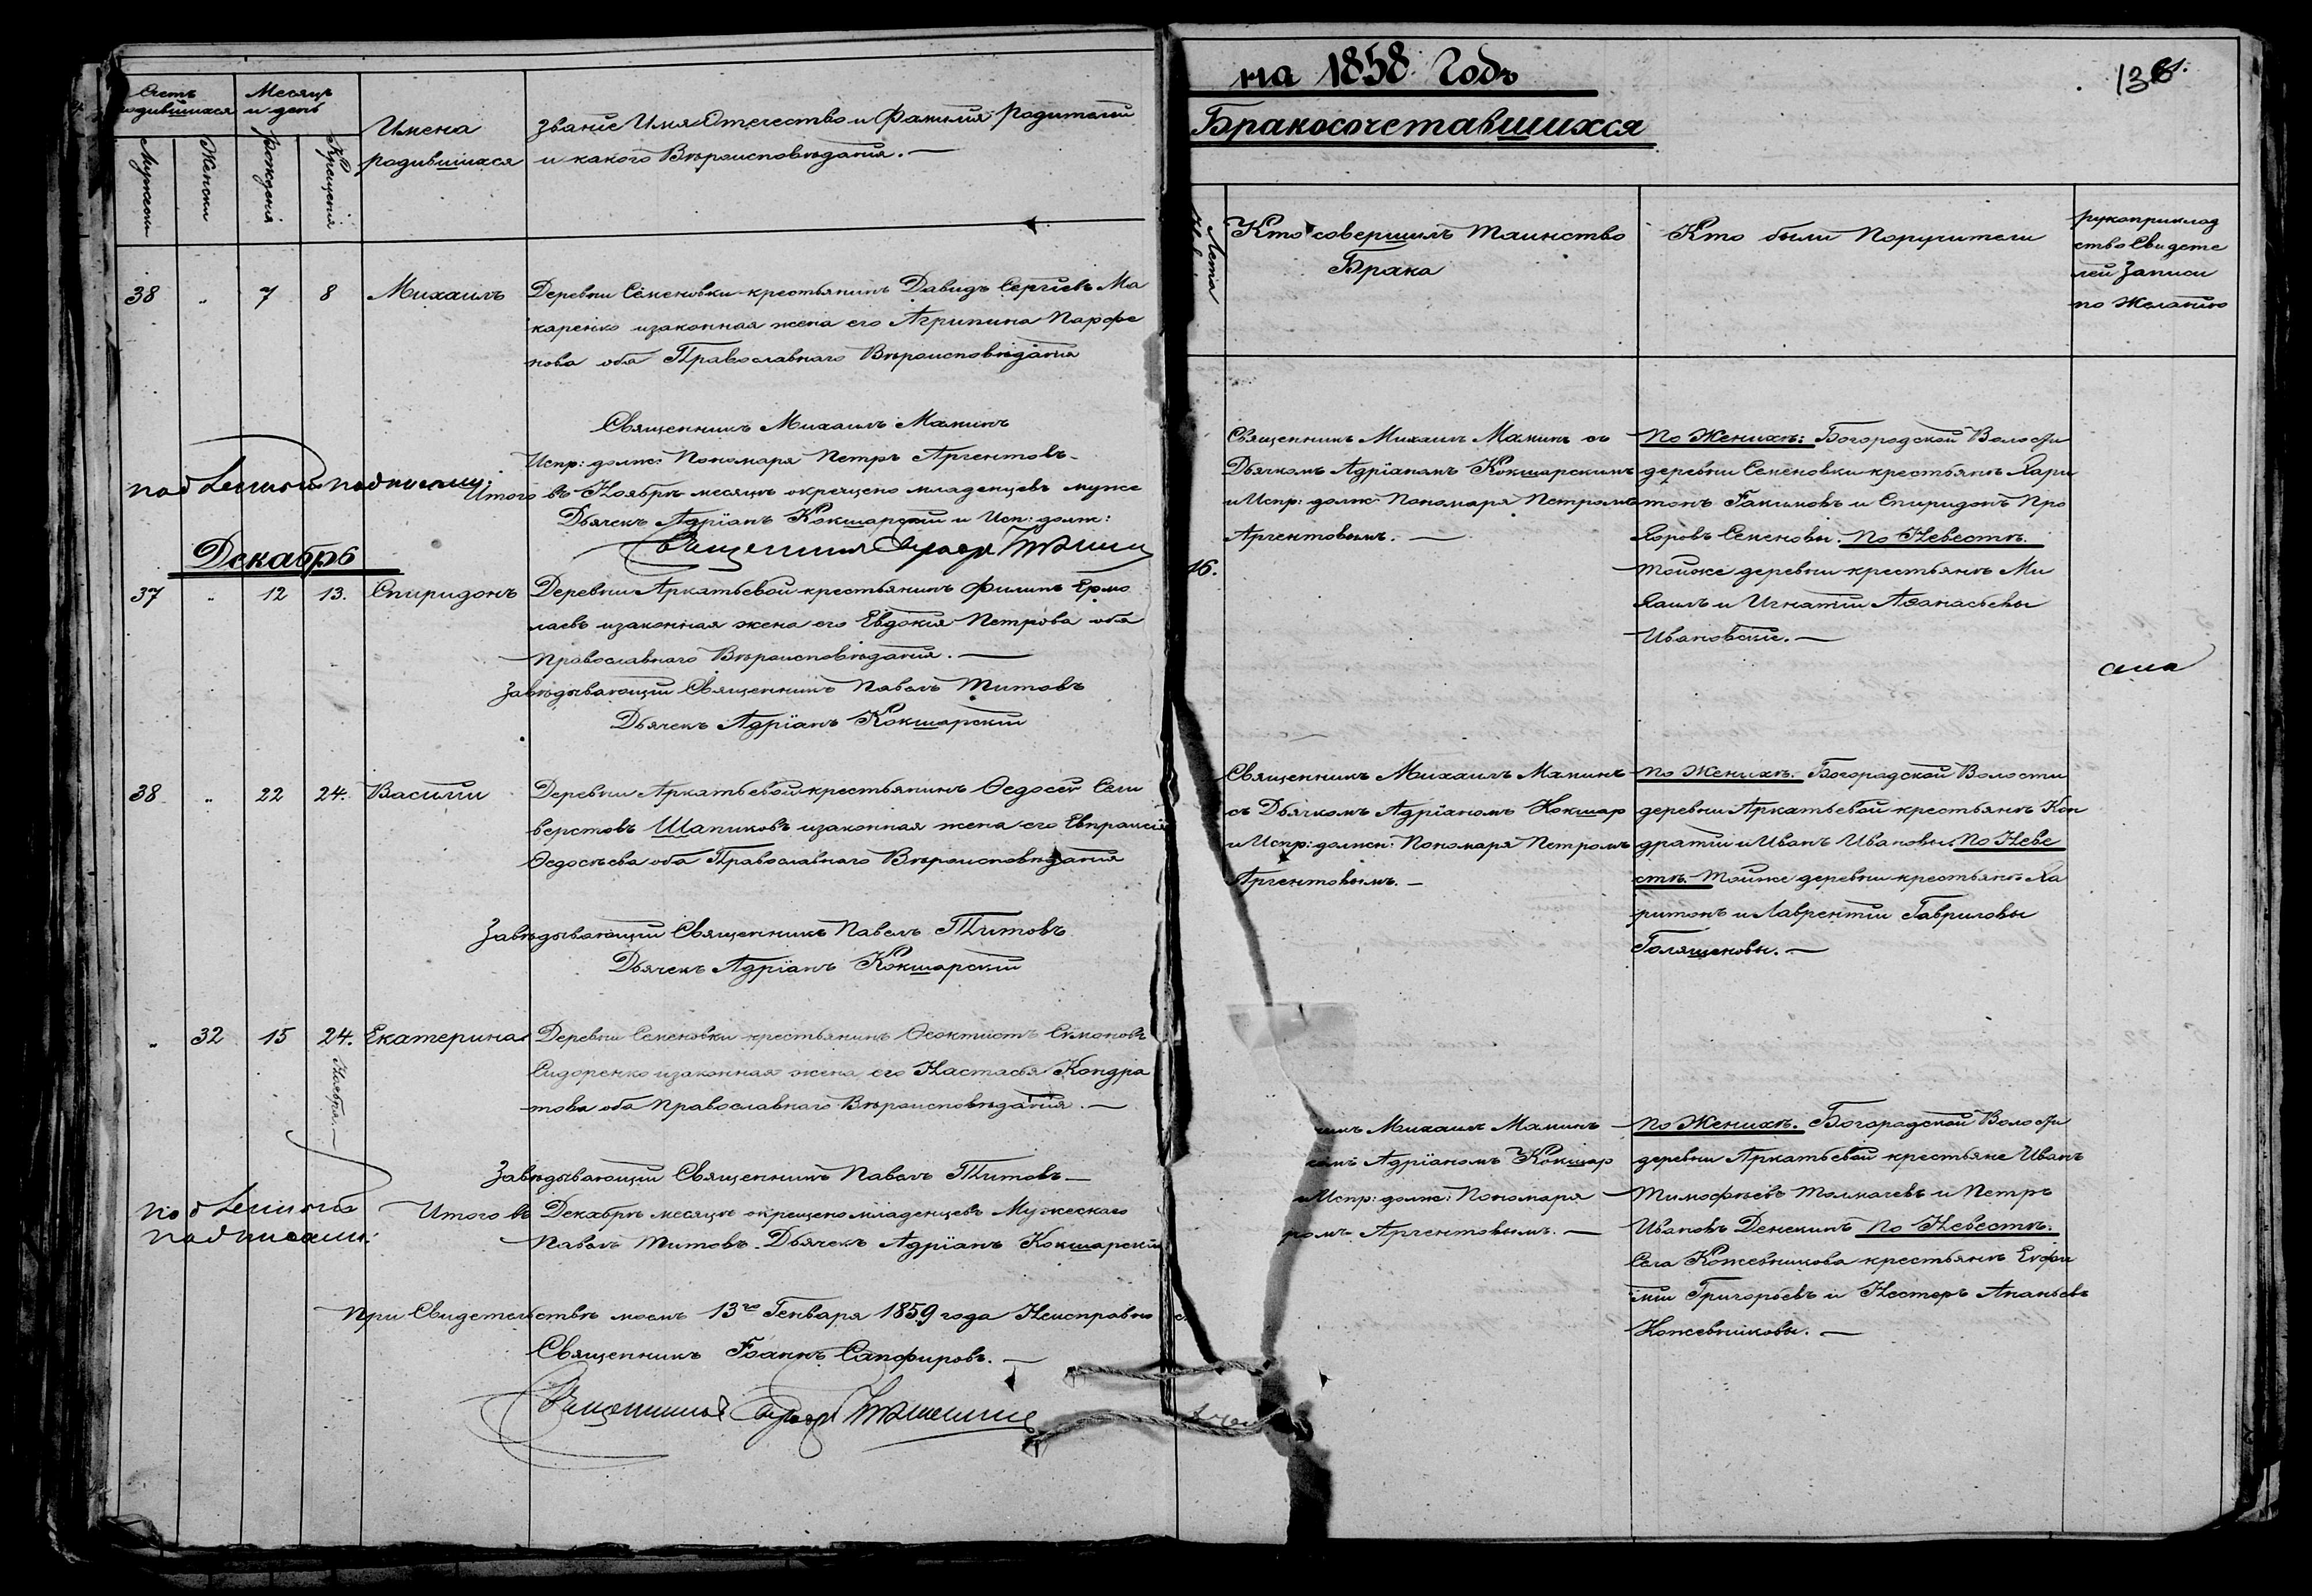 Счетъ
родившихся
Месяцъ
и день
Мужески
Женски
Рождения
Крещения
Имена
родившихся
Звание Имя Отечество и Фамилия Родителей
и какого Вѣроисповѣдания. —
38 „ 7 8 Михаилъ Деревни Семеновки крестьянинъ Давидъ Сергіевъ Ма
каренко изаконная жена его Агрипина Парфе
нова оба Православнаго Вѣроисповѣдания
Священникъ Михаилъ Маминъ
Испр: должс Пономаря Петръ Аргентовъ
Итого въ Ноябрѣ месяцѣ окрещено младенцевъ муже
Дьячекъ Адріанъ Кокшарский и Исп: долж:
Декабрь
37 „ 12 13. Спиридонъ Деревни Аркатьевой крестьянинъ Филипъ Ермо
лаевъ изаконная жена его Евдокия Петрова оба
Православнаго Вѣроисповѣдания. —
Завѣдывающий Священникъ Павелъ Титовъ
Дьячекъ Адріанъ Кокшарский
38 „ 22 24. Василий Деревни Аркатьевой крестьянинъ Ѳедосей Сели
верстовъ Шапиковъ изаконная жена его Евпраксія
Ѳедосѣева оба Православнаго Вѣроисповѣдания
Завѣдывающий Священникъ Павелъ Титовъ
Дьячекъ Адріанъ Кокшарский
„ 32 15 24. Екатерина Деревни Семеновки крестьянинъ Ѳеоктистъ Симоновъ
Ноября. —
Сидоренко изаконная жена его Настасья Кондра
това оба Православнаго Вѣроисповѣдания. —
Завѣдывающий Священникъ Павелъ Титовъ —
Итого въ Декабрѣ месяцѣ окрещено младенцевъ Мужескаго
Павелъ Титовъ. Дьячекъ Адріанъ Кокшарский
При Свидетельствѣ моемъ 13го Генваря 1859 года Неисправно
Священникъ Іоаннъ Сапфировъ. —
на 1858 Годъ
136.
Бракосочетавшихся
Лета
Кто совершилъ таинство
Брака
Кто были Поручители
рукоприклад
ство Свидете
лей Записи
по Желанію
Священникъ Михаилъ Маминъ съ
Дьячкомъ Адріаномъ Кокшарскимъ
и Испр: долж Пономаря Петромъ
Аргентовымъ. —
16.
По Женихѣ: Богородской Волости
деревни Семеновки крестьянѣ Хари
тонъ Іакимовъ и Спиридонъ Про
хоровъ Семеновы. По Невестѣ.
тойже деревни крестьянѣ Ми
хаилъ и Игнатий Афанасьевы
Ивановские. —
Священникъ Михаилъ Маминъ
съ Дьячкомъ Адріаномъ Кокшар
и Испр: должн: Пономаря Петромъ
Аргентовымъ. —
По Женихѣ. Богородской Волости
деревни Аркатьевой крестьянѣ Кон
дратий и Иванъ Ивановы. По Неве
стѣ. Тойже деревни крестьянѣ Ха
ритонъ и Лаврентий Гавриловы
Голященковы. —
Михаилъ Маминъ
Адріаномъ Кокшар
и Испр: долж: Пономаря
ромъ Аргентовымъ. —
По Женихѣ. Богородской Волости
деревни Аркатьевой крестьяне Иванъ
Тимофѣевъ Толмачевъ и Петръ
Ивановъ Денекинъ По Невестѣ.
Села Кожевникова крестьянѣ Евфи
мий Григорьевъ и Нестеръ Ананьевъ
Кожевниковы. —